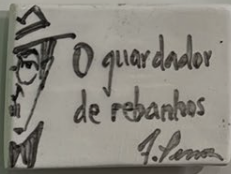 O guardador
de rebanhos
F. Pessoa